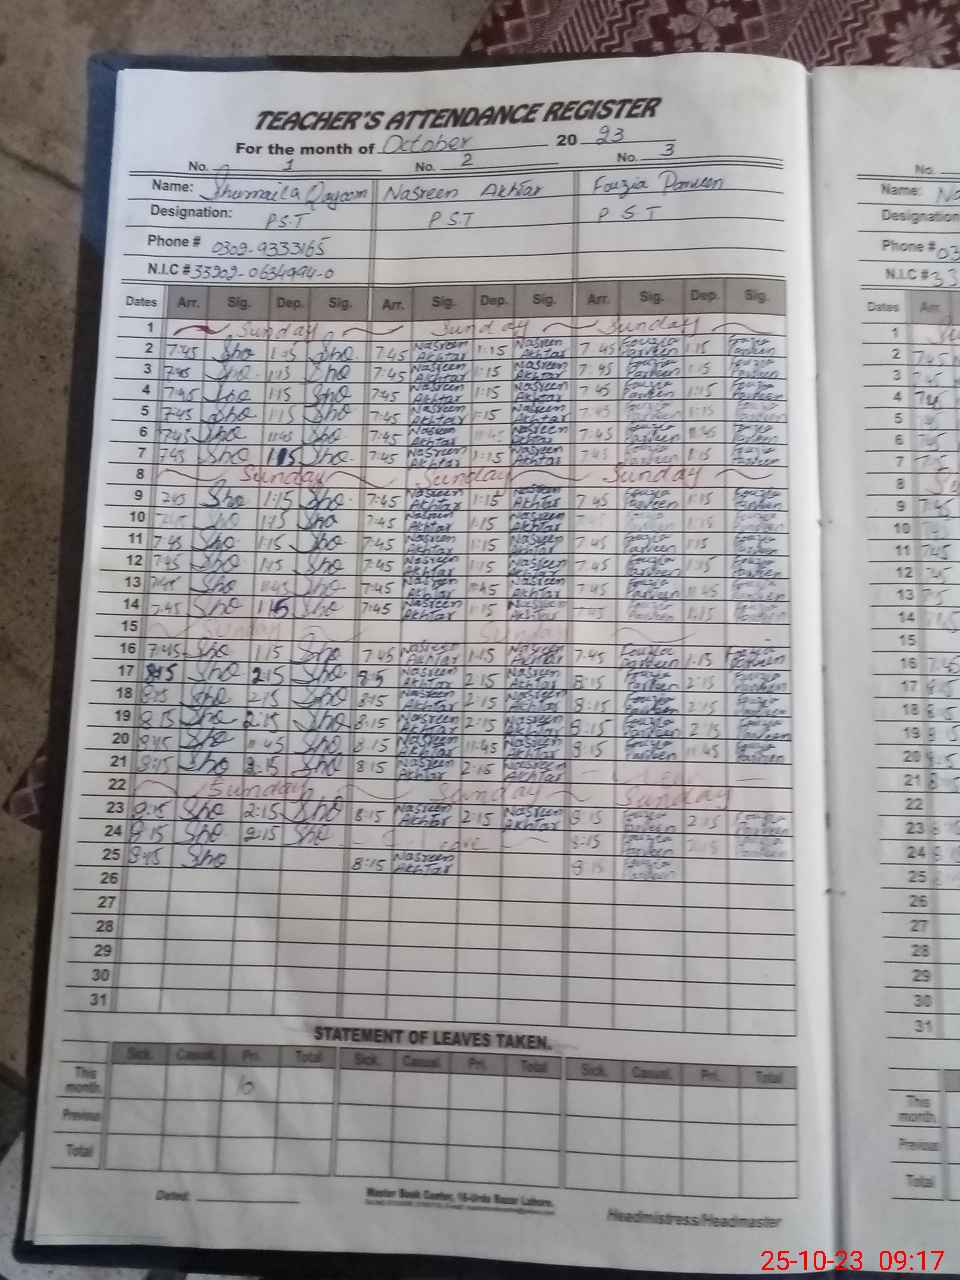 TEACHER'S ATTENDANCE REGISTER
For the month of October 20 23
No. 1 No. 2 No. 3
Name: Shumaila Qayoom Nasreen Akhtar Fouzia Parveen
Designation: P.S.T P.S.T P.S.T
Phone # 0302-9333165
N.I.C # 33202-0634994-0
Dates Arr. Sig. Dep. Sig. Arr. Sig. Dep. Sig. Arr. Sig. Dep. Sig.
1 Sunday Sunday Sunday
2 7:45 Sho 1:15 Sho 7:45 Nasreen Akhtar 1:15 Nasreen Akhtar 7:45 Fouzia Parveen 1:15 Fouzia Parveen
3 7:45 Sho 1:15 Sho 7:45 Nasreen Akhtar 1:15 Nasreen Akhtar 7:45 Fouzia Parveen 1:15 Fouzia Parveen
4 7:45 Sho 1:15 Sho 7:45 Nasreen Akhtar 1:15 Nasreen Akhtar 7:45 Fouzia Parveen 1:15 Fouzia Parveen
5 7:45 Sho 1:15 Sho 7:45 Nasreen Akhtar 1:15 Nasreen Akhtar 7:45 Fouzia Parveen 1:15 Fouzia Parveen
6 7:45 Sho 11:45 Sho 7:45 Nasreen Akhtar 11:45 Nasreen Akhtar 7:45 Fouzia Parveen 11:45 Fouzia Parveen
7 7:45 Sho 1:15 Sho 7:45 Nasreen Akhtar 1:15 Nasreen Akhtar 7:45 Fouzia Parveen 1:15 Fouzia Parveen
8 Sunday Sunday Sunday
9 7:45 Sho 1:15 Sho 7:45 Nasreen Akhtar 1:15 Nasreen Akhtar 7:45 Fouzia Parveen 1:15 Fouzia Parveen
10 7:45 Sho 1:15 Sho 7:45 Nasreen Akhtar 1:15 Nasreen Akhtar 7:45 Fouzia Parveen 1:15 Fouzia Parveen
11 7:45 Sho 1:15 Sho 7:45 Nasreen Akhtar 1:15 Nasreen Akhtar 7:45 Fouzia Parveen 1:15 Fouzia Parveen
12 7:45 Sho 1:15 Sho 7:45 Nasreen Akhtar 1:15 Nasreen Akhtar 7:45 Fouzia Parveen 1:15 Fouzia Parveen
13 7:45 Sho 11:45 Sho 7:45 Nasreen Akhtar 11:45 Nasreen Akhtar 7:45 Fouzia Parveen 11:45 Fouzia Parveen
14 7:45 Sho 1:15 Sho 7:45 Nasreen Akhtar 1:15 Nasreen Akhtar 7:45 Fouzia Parveen 1:15 Fouzia Parveen
15 Sunday Sunday
16 7:45 Sho 1:15 Sho 7:45 Nasreen Akhtar 1:15 Nasreen Akhtar 7:45 Fouzia Parveen 1:15 Fouzia Parveen
17 8:15 Sho 2:15 Sho 8:15 Nasreen Akhtar 2:15 Nasreen Akhtar 8:15 Fouzia Parveen 2:15 Fouzia Parveen
18 8:15 Sho 2:15 Sho 8:15 Nasreen Akhtar 2:15 Nasreen Akhtar 8:15 Fouzia Parveen 2:15 Fouzia Parveen
19 8:15 Sho 2:15 Sho 8:15 Nasreen Akhtar 2:15 Nasreen Akhtar 8:15 Fouzia Parveen 2:15 Fouzia Parveen
20 8:15 Sho 11:45 Sho 8:15 Nasreen Akhtar 11:45 Nasreen Akhtar 8:15 Fouzia Parveen 11:45 Fouzia Parveen
21 8:15 Sho 2:15 Sho 8:15 Nasreen Akhtar 2:15 Nasreen Akhtar
22 Sunday Sunday Sunday
23 8:15 Sho 2:15 Sho 8:15 Nasreen Akhtar 2:15 Nasreen Akhtar 8:15 Fouzia Parveen 2:15 Fouzia Parveen
24 8:15 Sho 2:15 Sho 8:15 Fouzia Parveen 2:15 Fouzia Parveen
25 8:15 Sho 8:15 Nasreen Akhtar 8:15 Fouzia Parveen
26
27
28
29
30
31
STATEMENT OF LEAVES TAKEN.
Sick. Casual. Pri. Total Sick. Casual. Pri. Total Sick. Casual. Pri. Total
This month 10
Previous
Total
Dated:
Master Book Center, 16-Urdu Bazar Lahore.
Headmistress/Headmaster
No.
Name: Na
Designation
Phone # 03
N.I.C # 33
Dates Arr.
1 Su
2 7:45
3 7:45
4 7:45
5
6
7
8
9 7:45
10
11 7:45
12
13
14
15
16 7:45
17 8:15
18
19 8:15
20
21
22
23
24
25
26
27
28
29
30
31
This month
Previous
Total
25-10-23 09:17